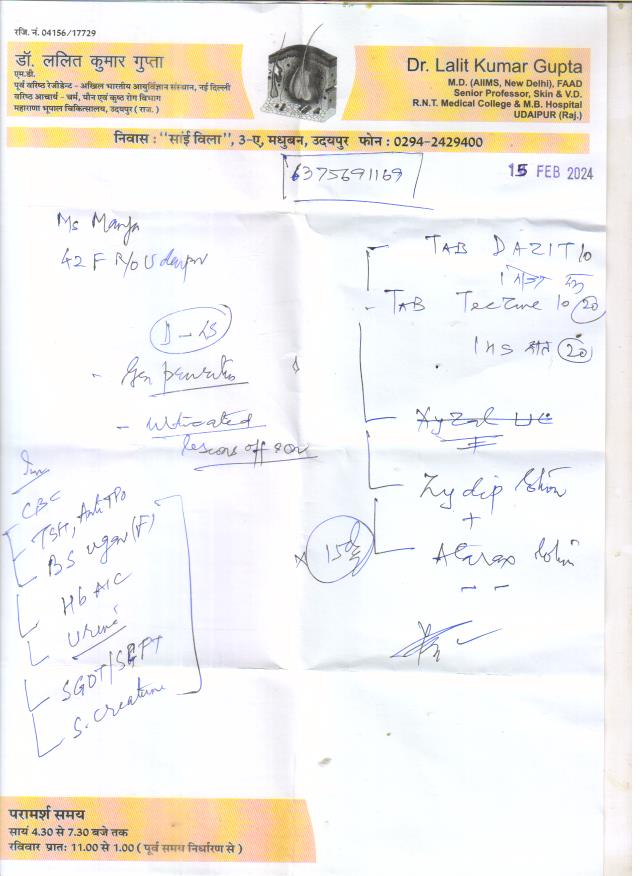 रजि. नं. 04156/17729
डॉ. ललित कुमार गुप्ता
एम.डी.
पूर्व वरिष्ठ रेजीडेन्ट - अखिल भारतीय आयुर्विज्ञान संस्थान, नई दिल्ली
वरिष्ठ आचार्य - चर्म, यौन एवं कुष्ठ रोग विभाग
महाराणा भूपाल चिकित्सालय, उदयपुर ( राज. )
Dr. Lalit Kumar Gupta
M.D. (AIIMS, New Delhi), FAAD
Senior Professor, Skin & V.D.
R.N.T. Medical College & M.B. Hospital
UDAIPUR (Raj.)
निवास : "सांई विला", 3-ए, मधुबन, उदयपुर फोन : 0294-2429400
6375691169
15 FEB 2024
Ms
42 F R/o Udaipur
Gen pruritis
- urticated
lesions off & on
Inv
CBC
TSH, Anti TPO
B Sugar (F)
HbA1C
Urine
SGOT/SGPT
S. Creatinine
TAB DAZIT 10
- TAB Teczine 10 20
1 HS रात 20
Xyzal
Zydip lotion
+
Atarax lotion
परामर्श समय
सायं 4.30 से 7.30 बजे तक
रविवार प्रातः 11.00 से 1.00 ( पूर्व समय निर्धारण से )